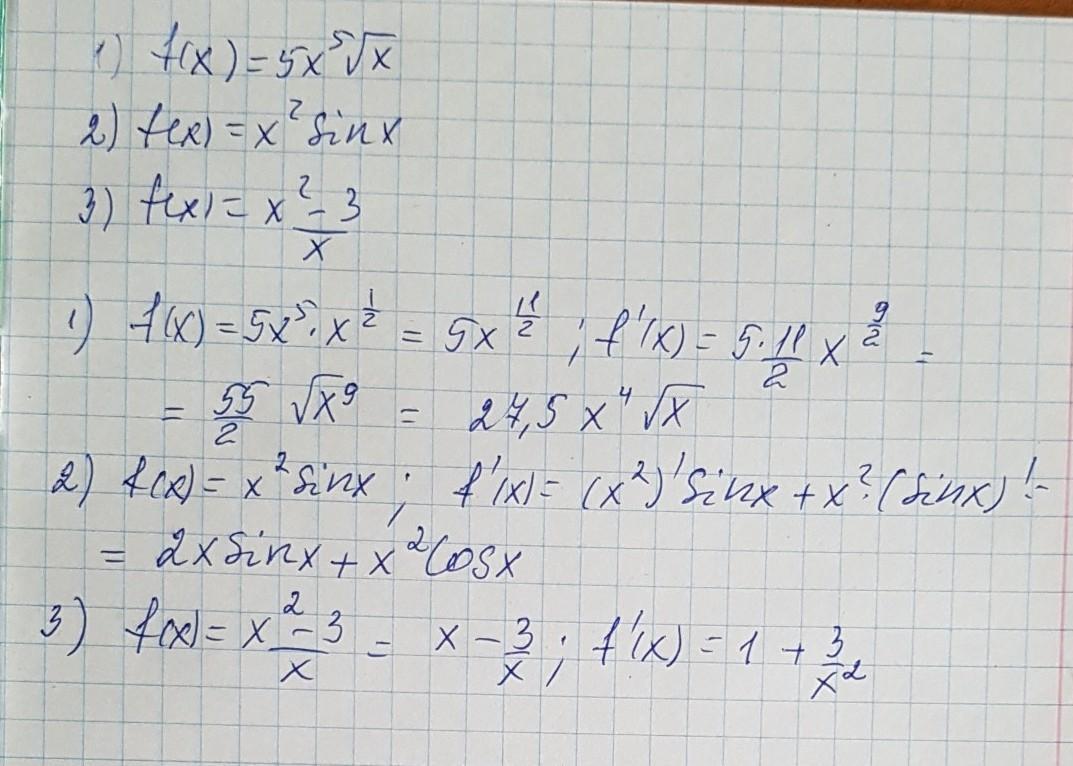 1) f(x) = 5x⁵√x
2) f(x) = x² sin x
3) f(x) = (x² - 3)/x
1) f(x) = 5x⁵ · x^(1/2) = 5x^(11/2) ; f'(x) = 5 · 11/2 x^(9/2) =
= 55/2 √x⁹ = 27,5 x⁴ √x
2) f(x) = x² sin x ; f'(x) = (x²)' sin x + x² · (sin x)' =
= 2x sin x + x² cos x
3) f(x) = (x² - 3)/x = x - 3/x ; f'(x) = 1 + 3/x²